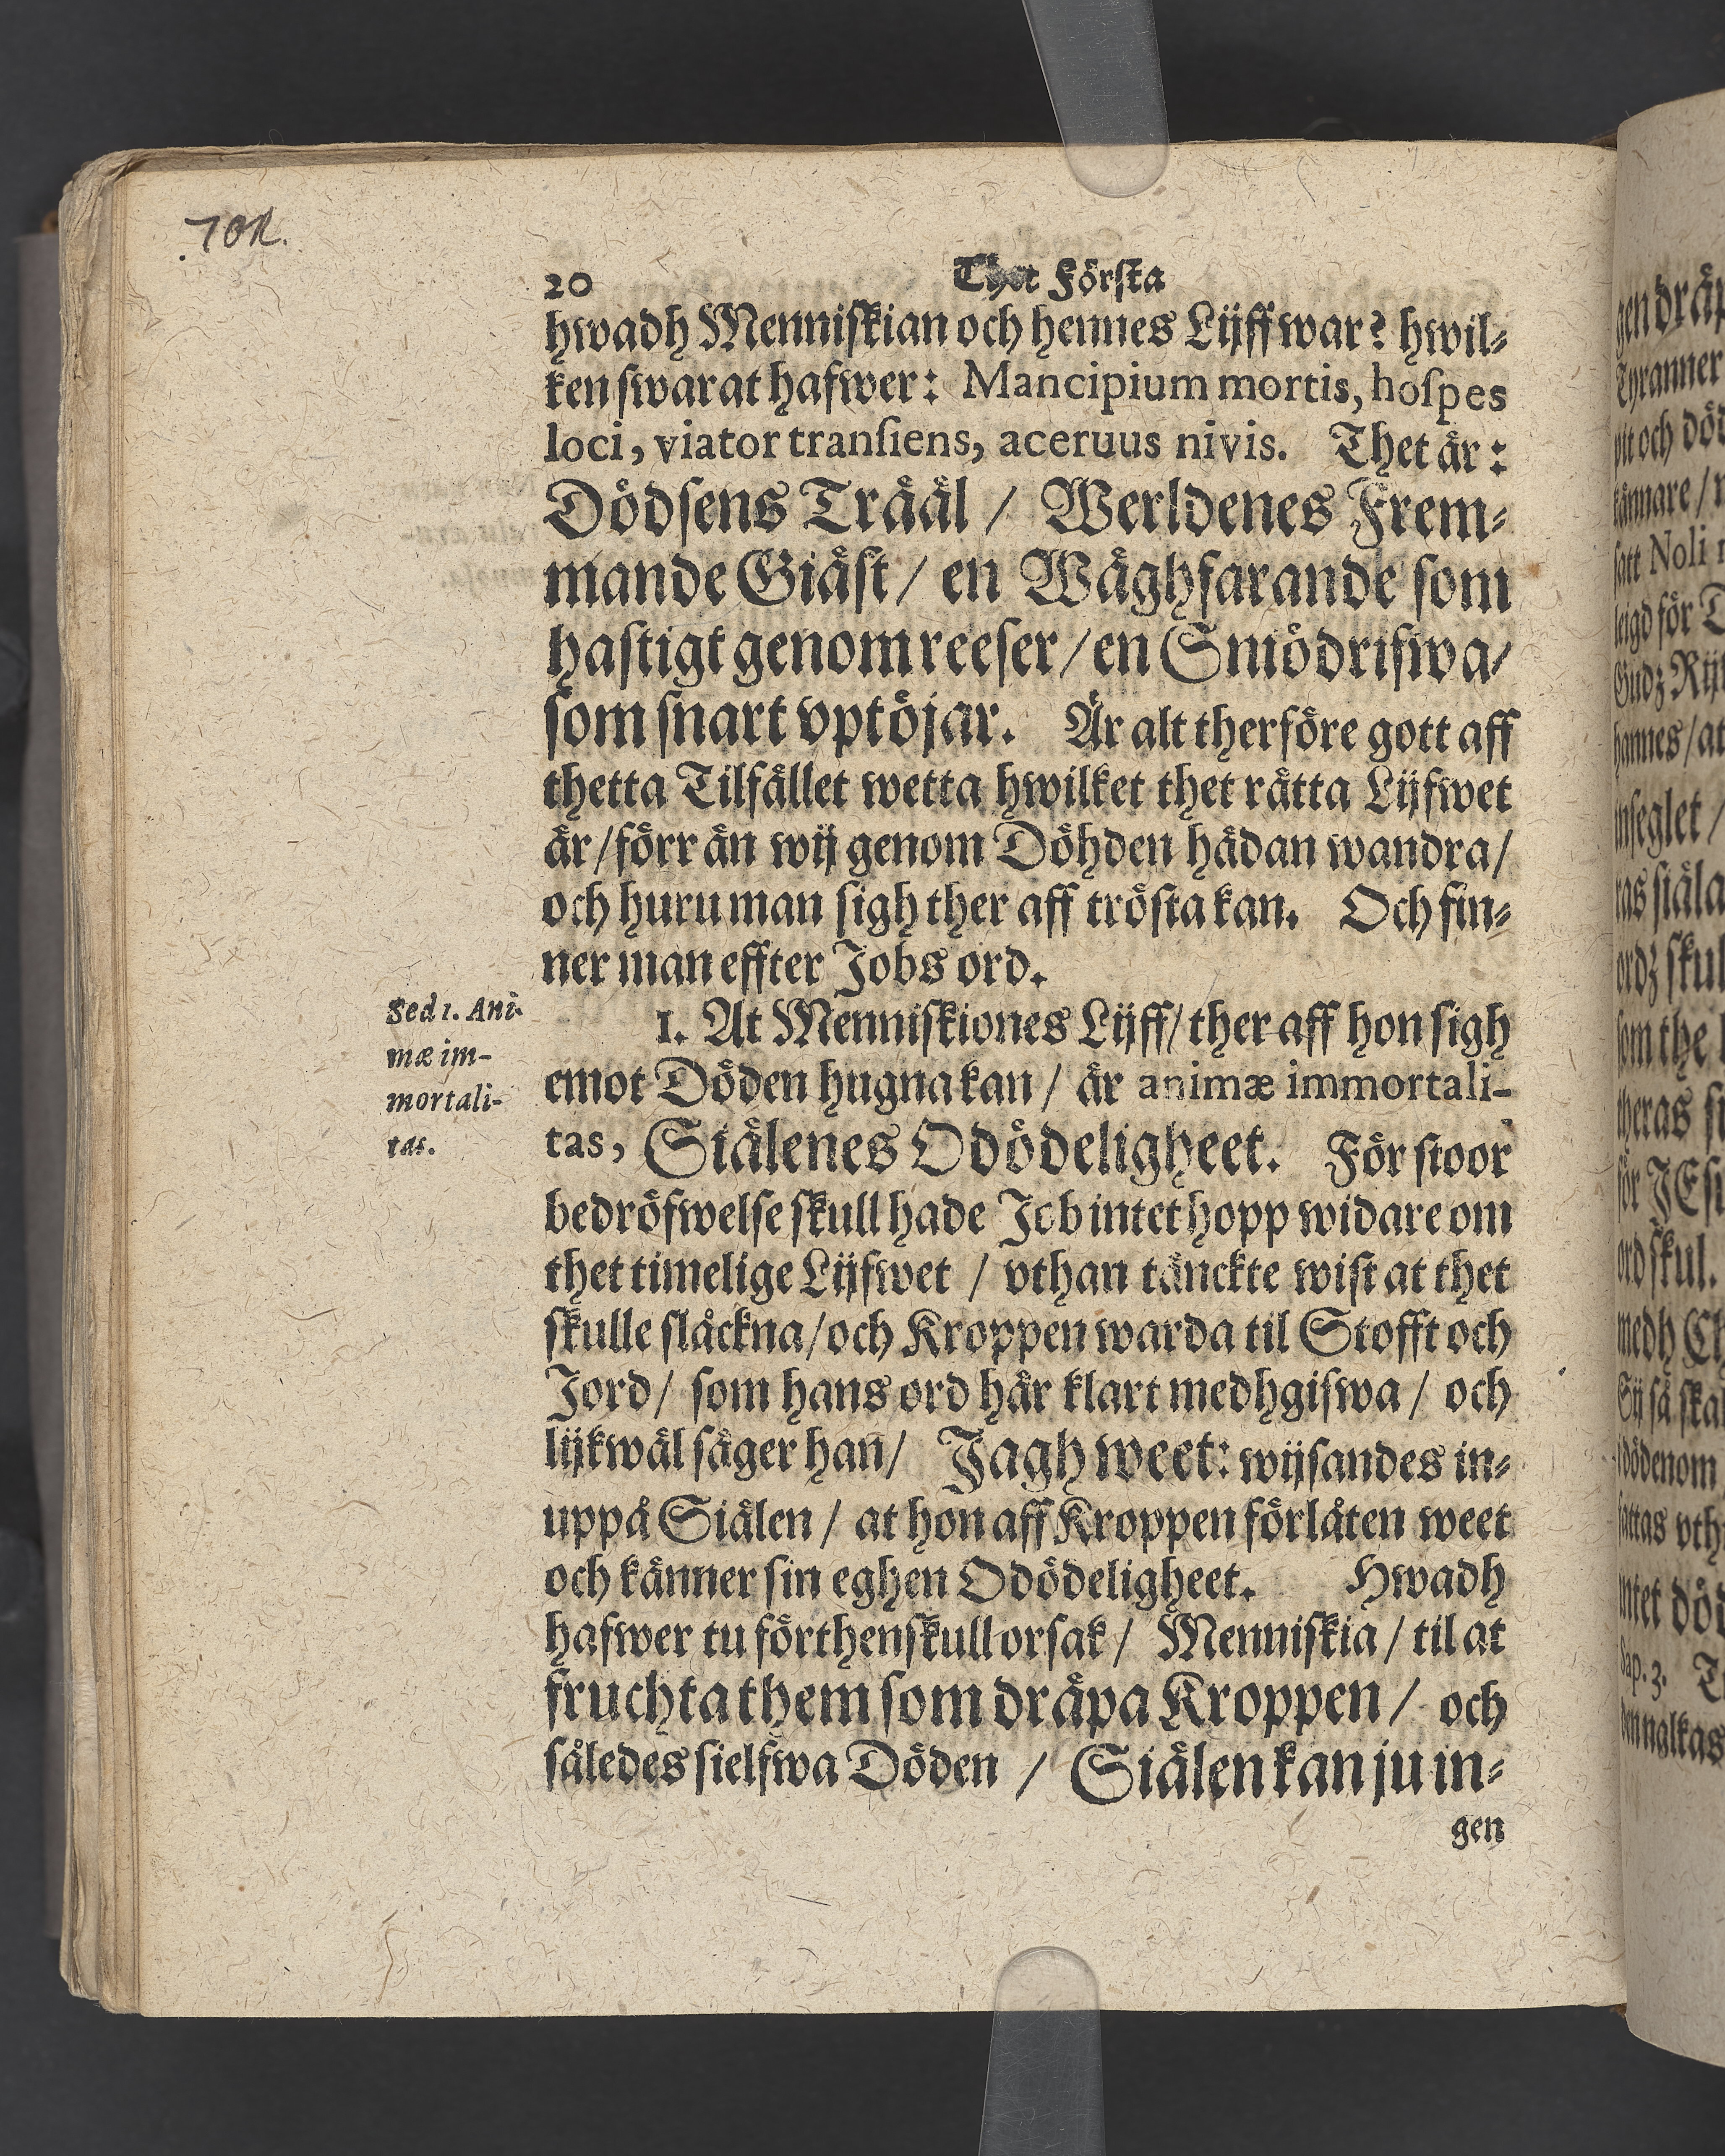 70R.
20
Thet Första
hwadh Menniskian och hennes Lijff war? hwil-
ken swarat hafwer: Mancipium mortis, hoſpes
loci, viator tranſiens, aceruus nivis. Thet är:
Dödsens Träål / Werldenes Frem-
mande Giäst / en Wäghfarande som
hastigt genomreeser / en Sniödrifwa /
som snart vptöjar. Är alt therföre gott aff
thetta Tilfället wetta hwilket thet rätta Lijfwet
är / förr än wij genom Döhden hädan wandra /
och huru man sigh ther aff trösta kan. Och fin-
ner man effter Jobs ord.
Sed 1. Ani-
mæ im-
mortali-
tas.
1. At Menniskiones Lijff / ther aff hon sigh
emot Döden hugna kan / är animæ immortali-
tas, Siälenes Odödeligheet. För stoor
bedröfwelse skull hade Job intet hopp widare om
thet timelige Lijfwet / vthan tänckte wist at thet
skulle slåckna / och Kroppen warda til Stofft och
Jord / som hans ord här klart medhgifwa / och
lijkwäl säger han / Jagh weet: wijsandes in-
uppå Siälen / at hon aff Kroppen förlåten weet
och känner sin eghen Odödeligheet. Hwadh
hafwer tu förthenskull orsak / Menniskia / til at
fruchta them som dräpa Kroppen / och
således sielfwa Döden / Siälen kan ju in-
gen
gen dräp
Tyranner
pit och död
satt Noli
leigd för
Gudz Rij
hannes / at
inseglet /
ras siäla
ordz skul
som the
theras si
för JEsu
ord skul.
medh Ch
Sij så ska
dödenom
fattas vth
intet död
Sap. 3.